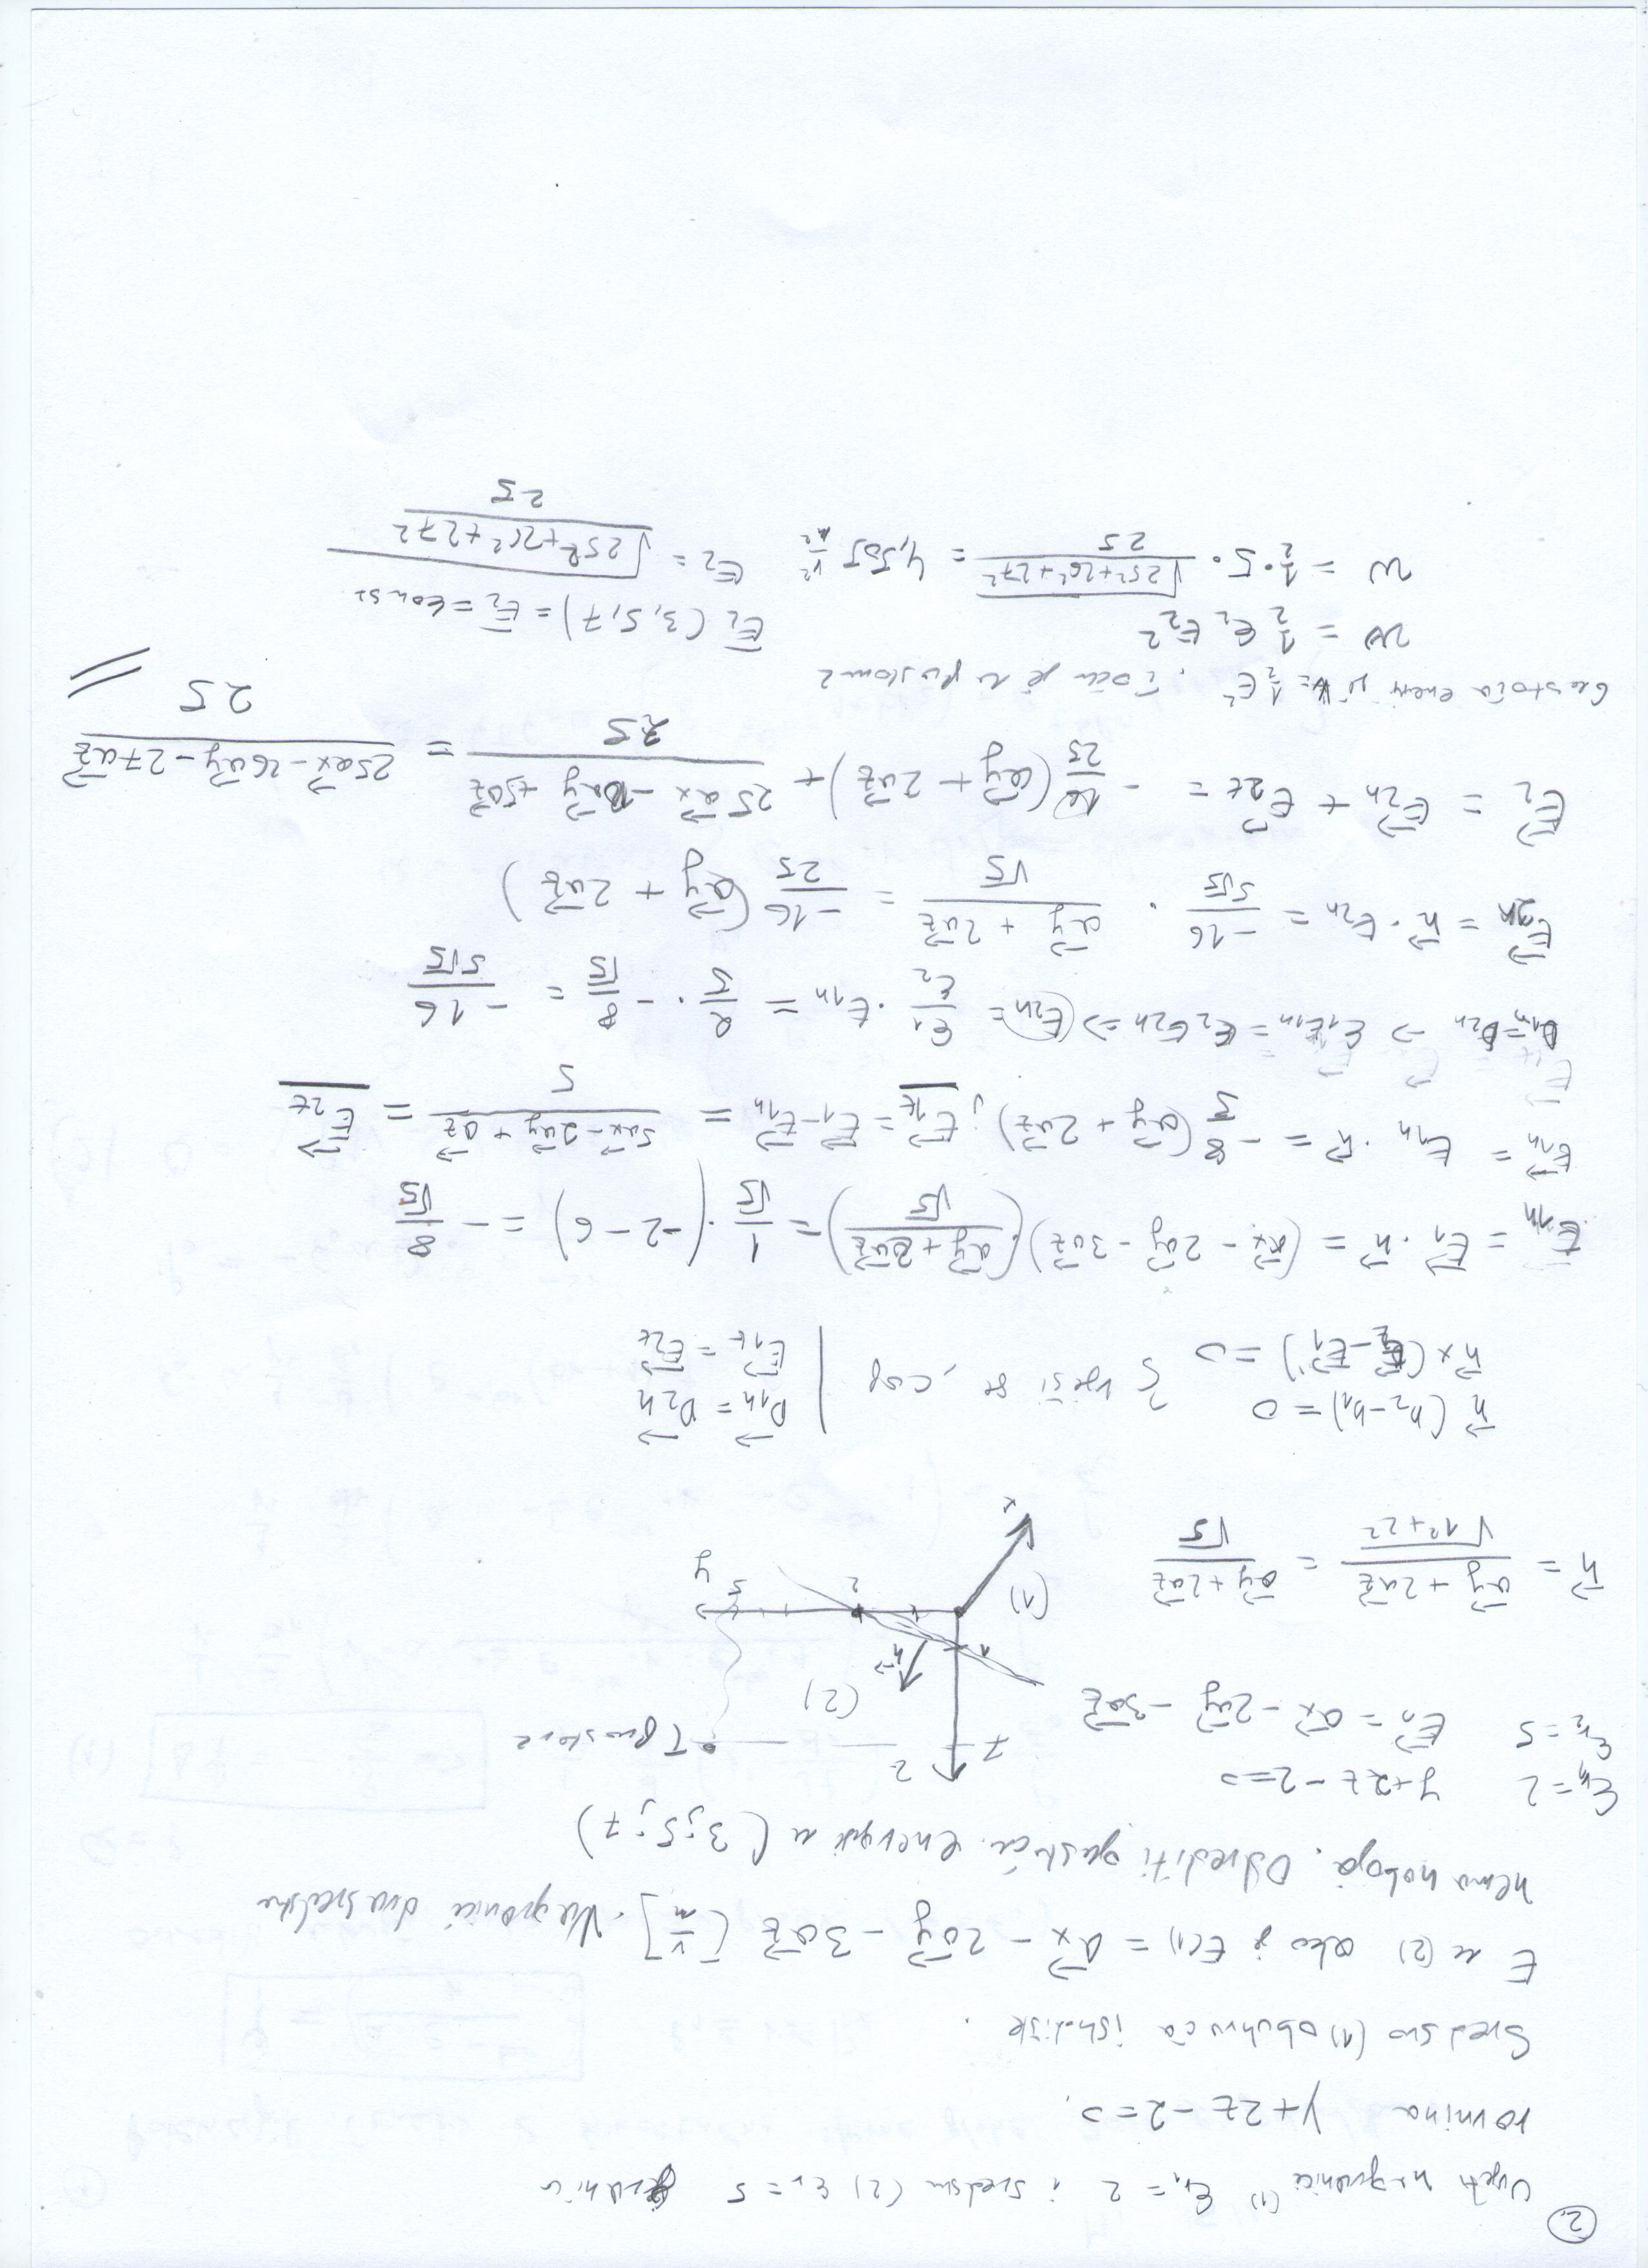 2.
Uvjeti na granici (1) εr1 = 2 i sredstvu (2) εr = 5 granica
ravnina y + 2z - 2 = 0.
Sredstvo (1) obuhvaća ishodište.
E u (2) ako je E(1) = ax→ - 2ay→ - 3az→ [V/m]. Na granici dva sredstva
nema naboja. Odrediti gustoću energije u (3;5;7)
εr1 = 2 y+2z-2=0
εr2 = 5 E1→ = ax→ - 2ay→ - 3az→
7 z T prostor 2
(2)
1 n→
(1) 2 5 y
x
n→ = (ay→ + 2az→)/√(1²+2²) = (ay→ + 2az→)/√5
n→ (D2-D1) = 0 D1n→ = D2n→
n→ x (E2→ - E1→) = 0 } rješi se, E1t→ = E2t→
E1n = E1→ · n→ = (ax→ - 2ay→ - 3az→) · ((ay→ + 2az→)/√5) = 1/√5 · (-2 - 6) = - 8/√5
E1n→ = E1n · n→ = -8/5 (ay→ + 2az→) ; E1t→ = E1→ - E1n→ = (5ax→ - 2ay→ + az→)/5 = E2t→
D1n = D2n → ε1E1n = ε2E2n => E2n = ε1/ε2 · E1n = 2/5 · - 8/√5 = -16/5√5
E2n→ = n→ · E2n = -16/5√5 · (ay→ + 2az→)/√5 = -16/25 (ay→ + 2az→)
E2→ = E2n→ + E2t→ = - 16/25 (ay→ + 2az→) + (25ax→ - 10ay→ + 5az→)/25 = (25ax→ - 26ay→ - 27az→)/25
Gustoća energije w = 1/2 E². Točka je u prostoru 2
w = 1/2 ε2 E2² E2 (3,5,7) = E2 = konst
w = 1/2 · 5 · √(25²+26²+27²)/25 = 4,505 V²/m² E2 = √(25²+26²+27²)/25